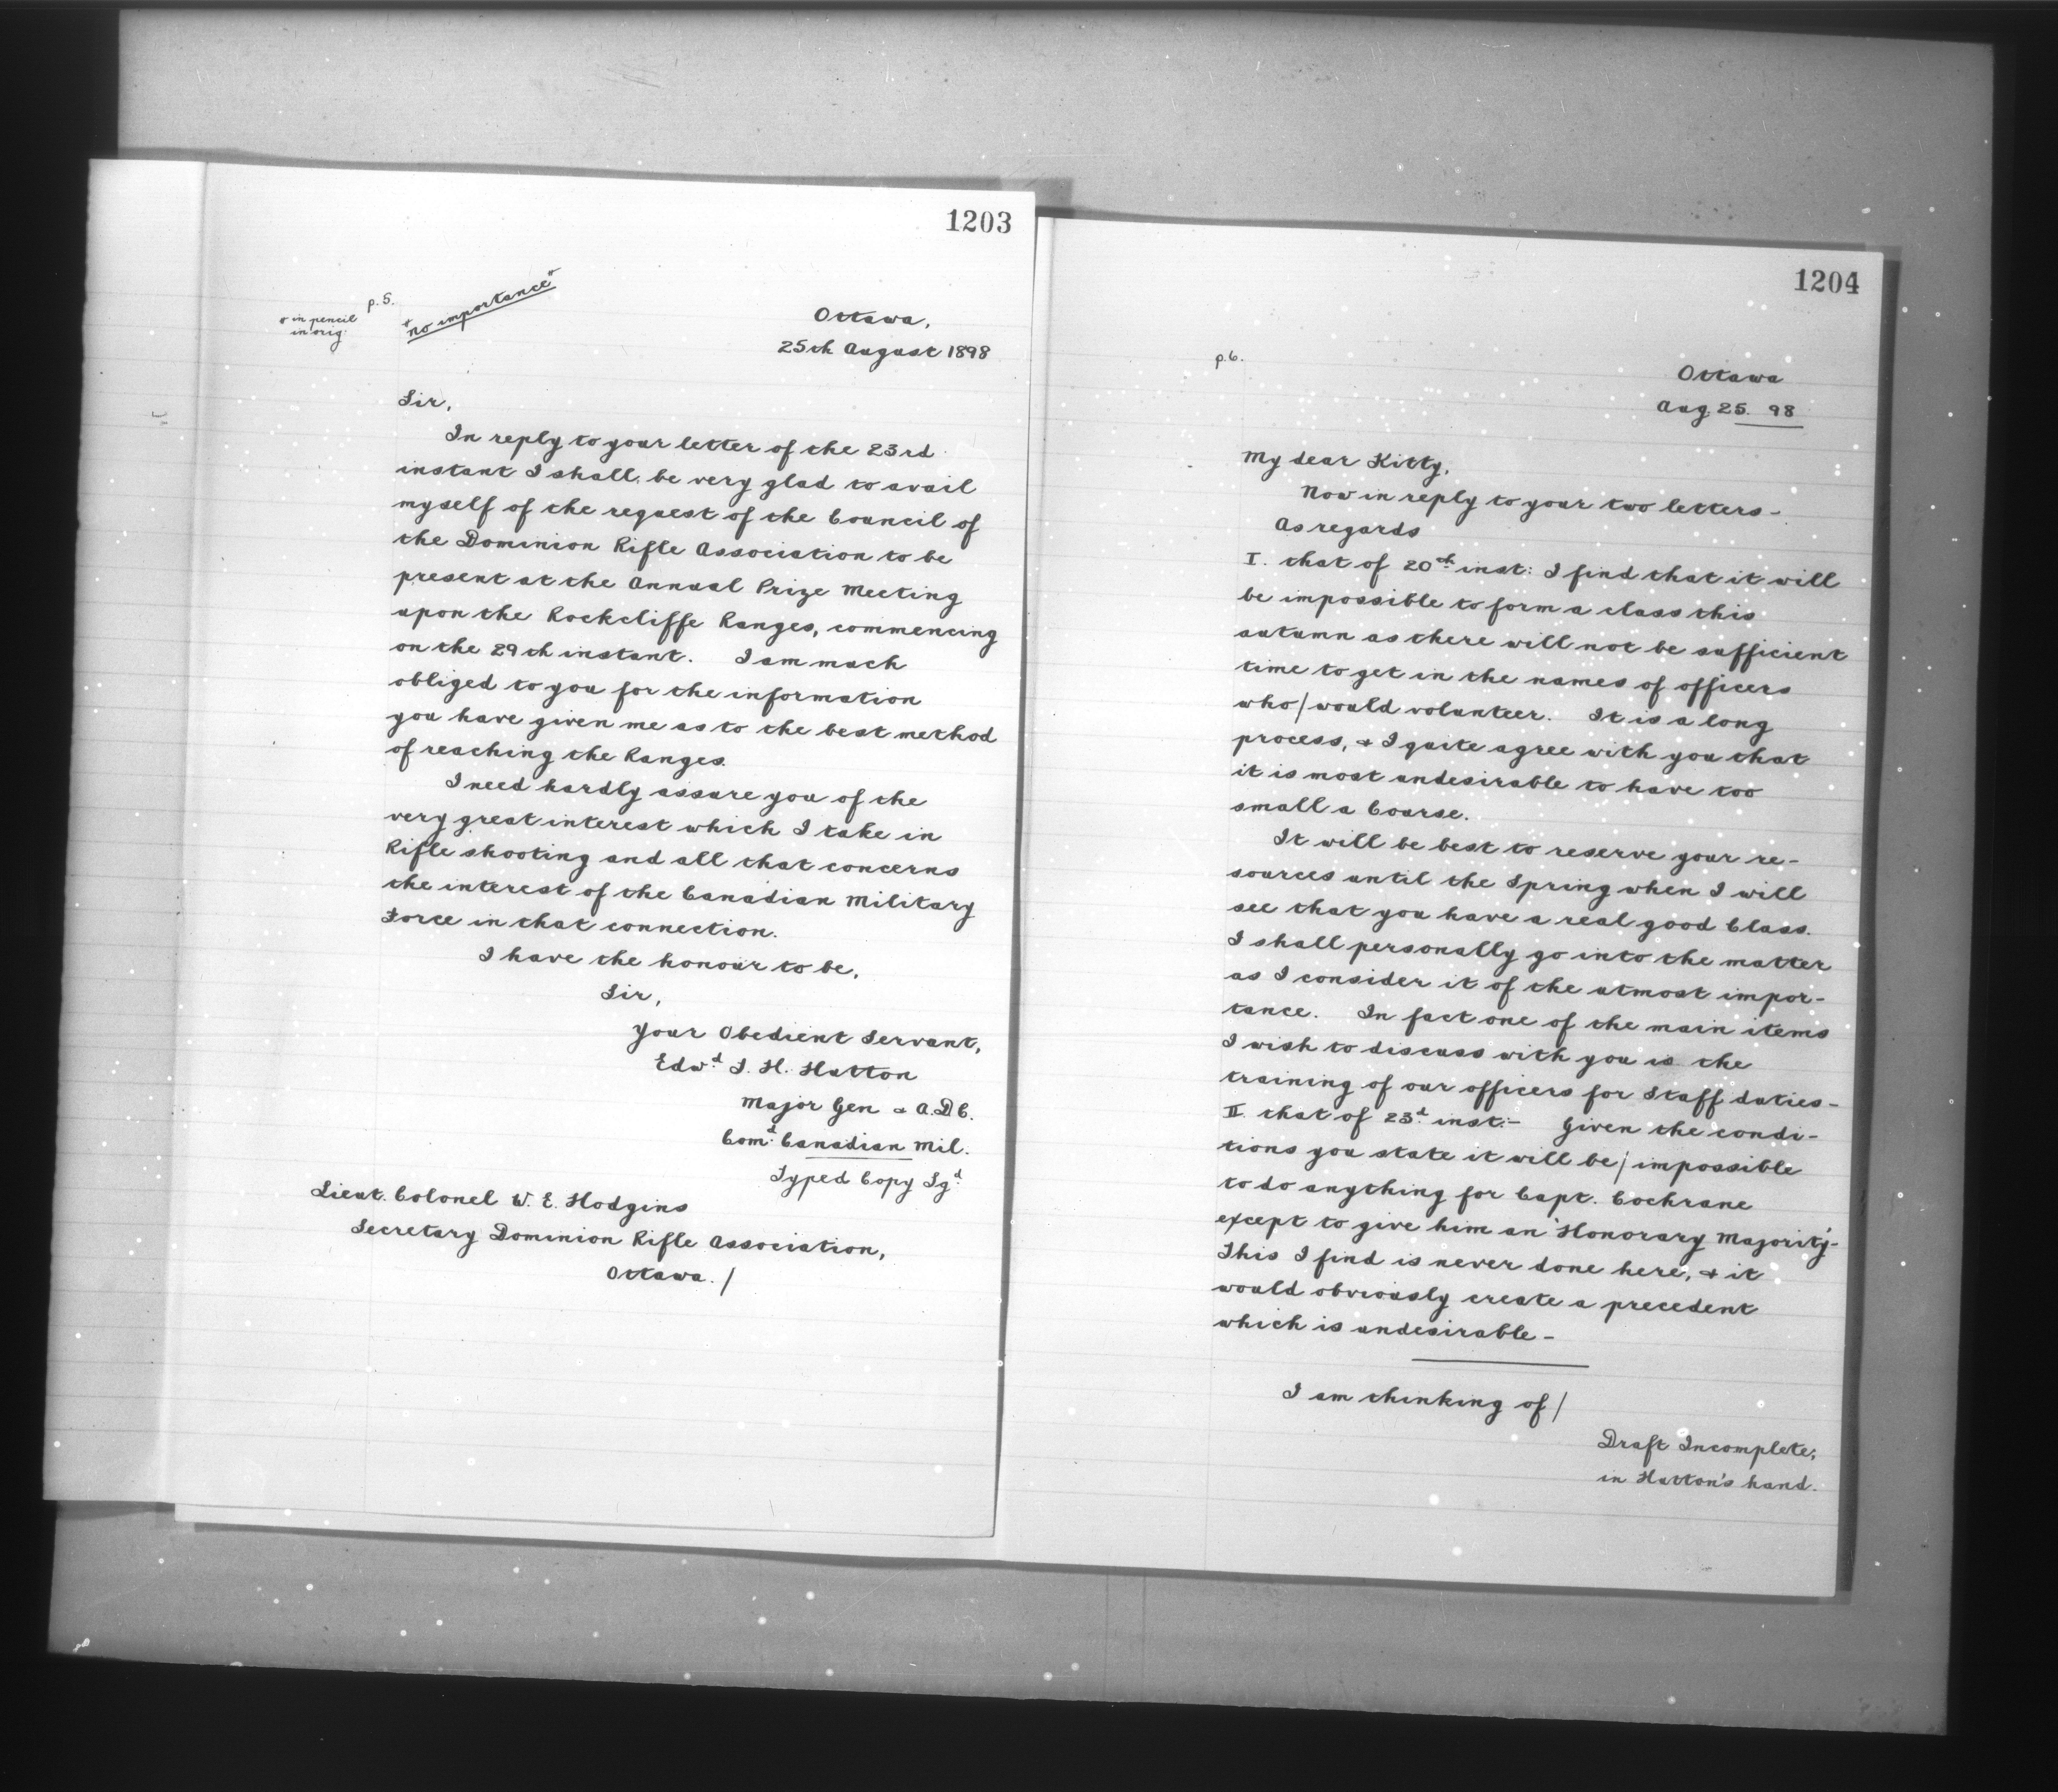 1203
p. 5.
"no importance"
" in pencil
in orig:
Ottawa,
25th August 1898
Sir,
In reply to your letter of the 23rd
instant I shall be very glad to avail
myself of the request of the Council of
the Dominion Rifle Association to be
present at the Annual Prize Meeting
upon the Rockcliffe Ranges, commencing
on the 29th instant. I am much
obliged to you for the information
you have given me as to the best method
of reaching the Ranges.
I need hardly assure you of the
very great interest which I take in
Rifle shooting and all that concerns
the interest of the Canadian Military
Force in that connection.
I have the honour to be,
Sir,
Your Obedient Servant,
Edwd. T. H. Hutton
Major Gen & A.D.C.
Comd. Canadian Mil.
Typed Copy Sgd.
Lieut. Colonel W. E. Hodgins
Secretary Dominion Rifle Association,
Ottawa. /
1204
p. 6.
Ottawa
Aug 25. 98
My dear Kitty,
Now in reply to your two letters -
As regards
I. that of 20th inst: I find that it will
be impossible to form a class this
autumn as there will not be sufficient
time to get in the names of officers
who / would volunteer. It is a long
process, & I quite agree with you that
it is most undesirable to have too
small a Course.
It will be best to reserve your re-
sources until the Spring when I will
see that you have a real good Class.
I shall personally go into the matter
as I consider it of the utmost impor-
tance. In fact one of the main items
I wish to discuss with you is the
training of our officers for Staff duties -
II. that of 23d. inst:- Given the condi-
tions you state it will be / impossible
to do anything for Capt. Cochrane
except to give him an 'Honorary Majority'-
This I find is never done here, & it
would obviously create a precedent
which is undesirable -
I am thinking of /
Draft Incomplete;
in Hutton's hand.